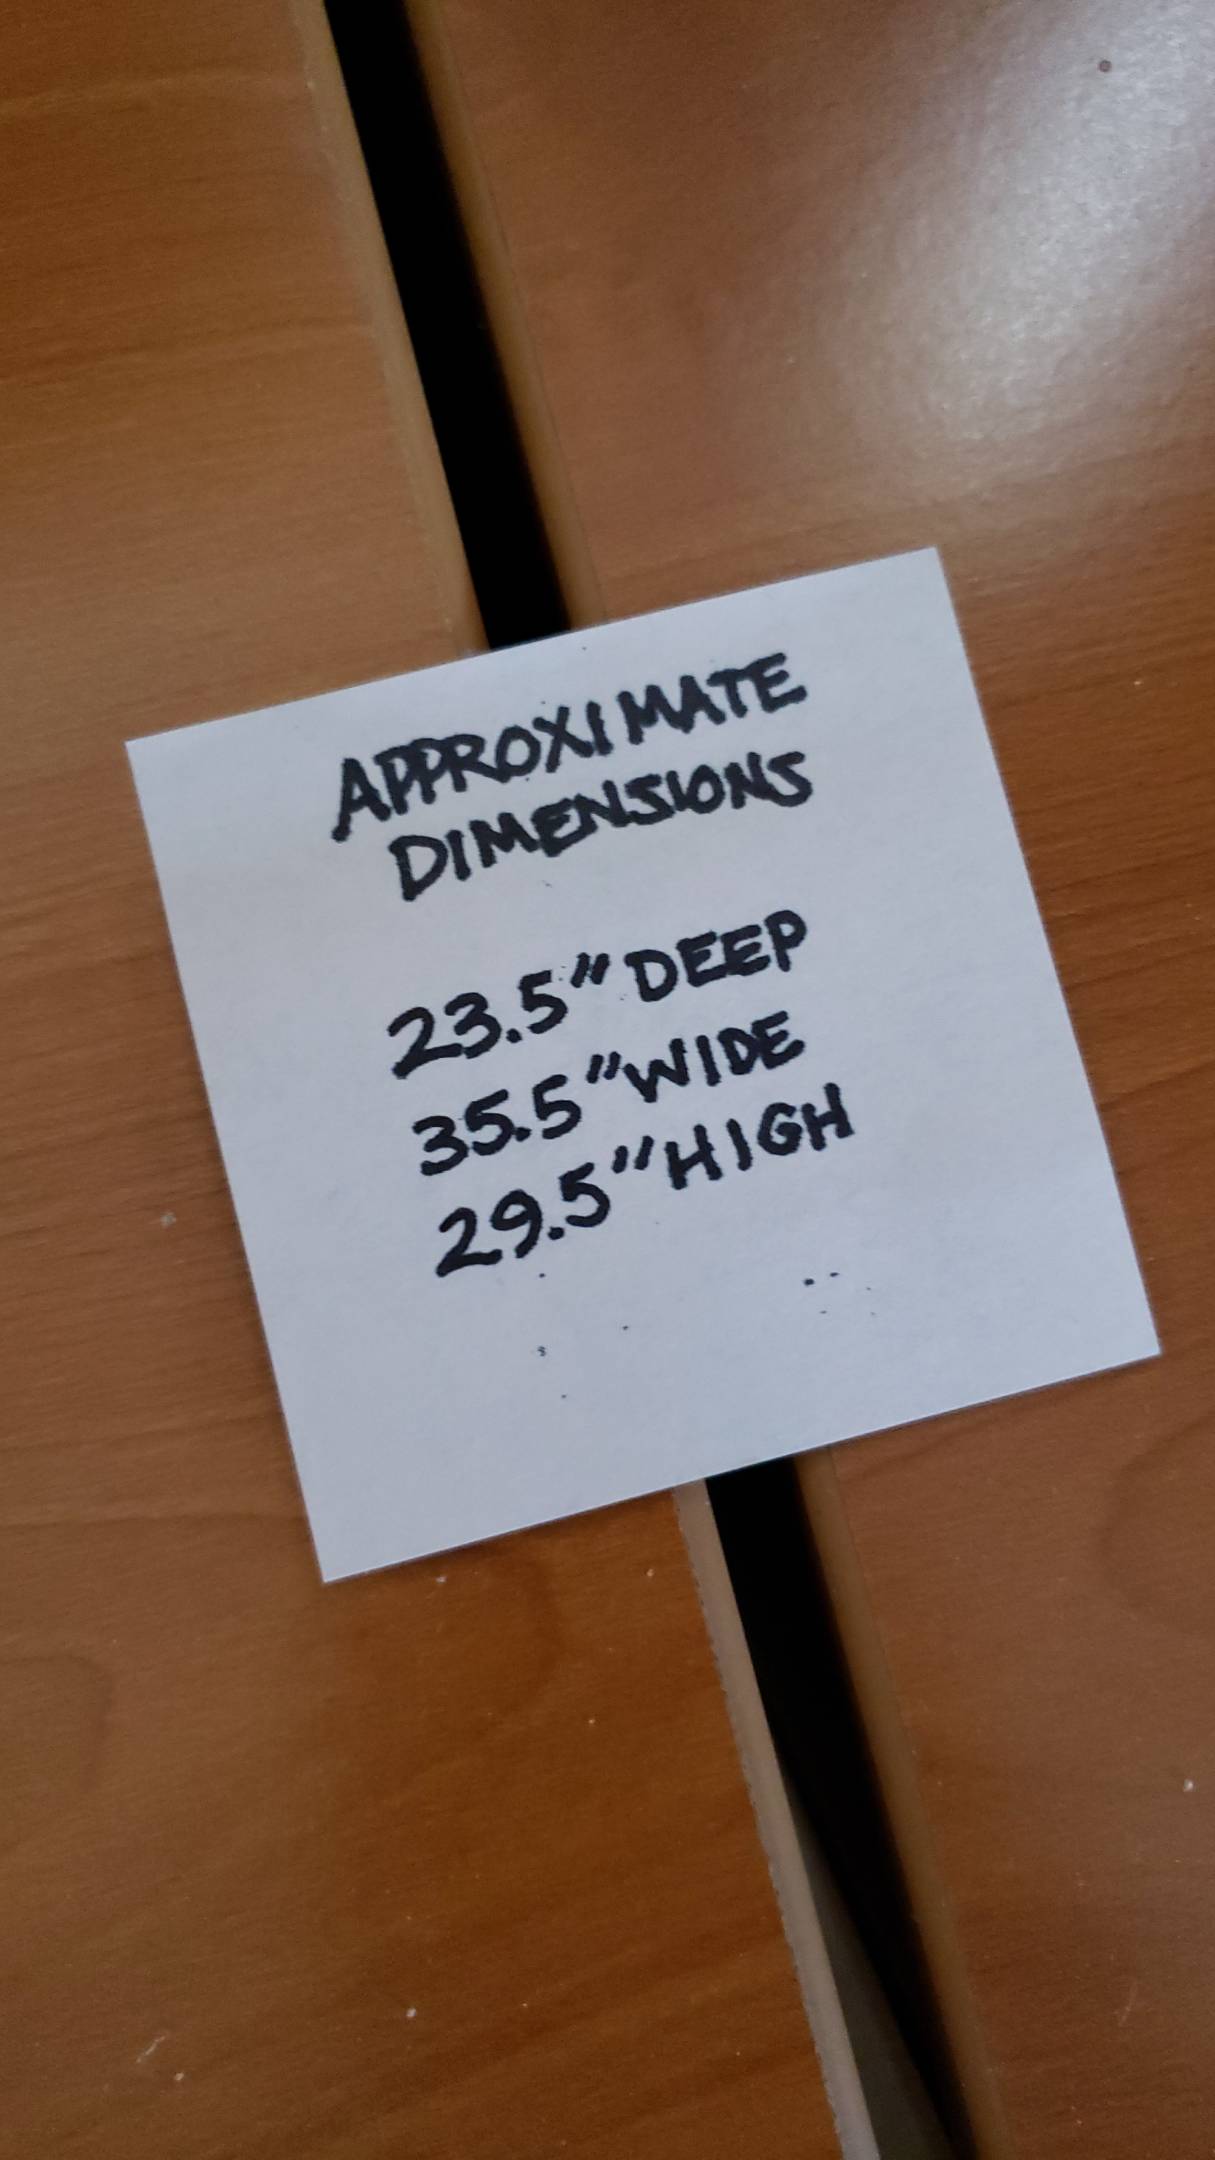 APPROXIMATE
DIMENSIONS
23.5" DEEP
35.5" WIDE
29.5" HIGH